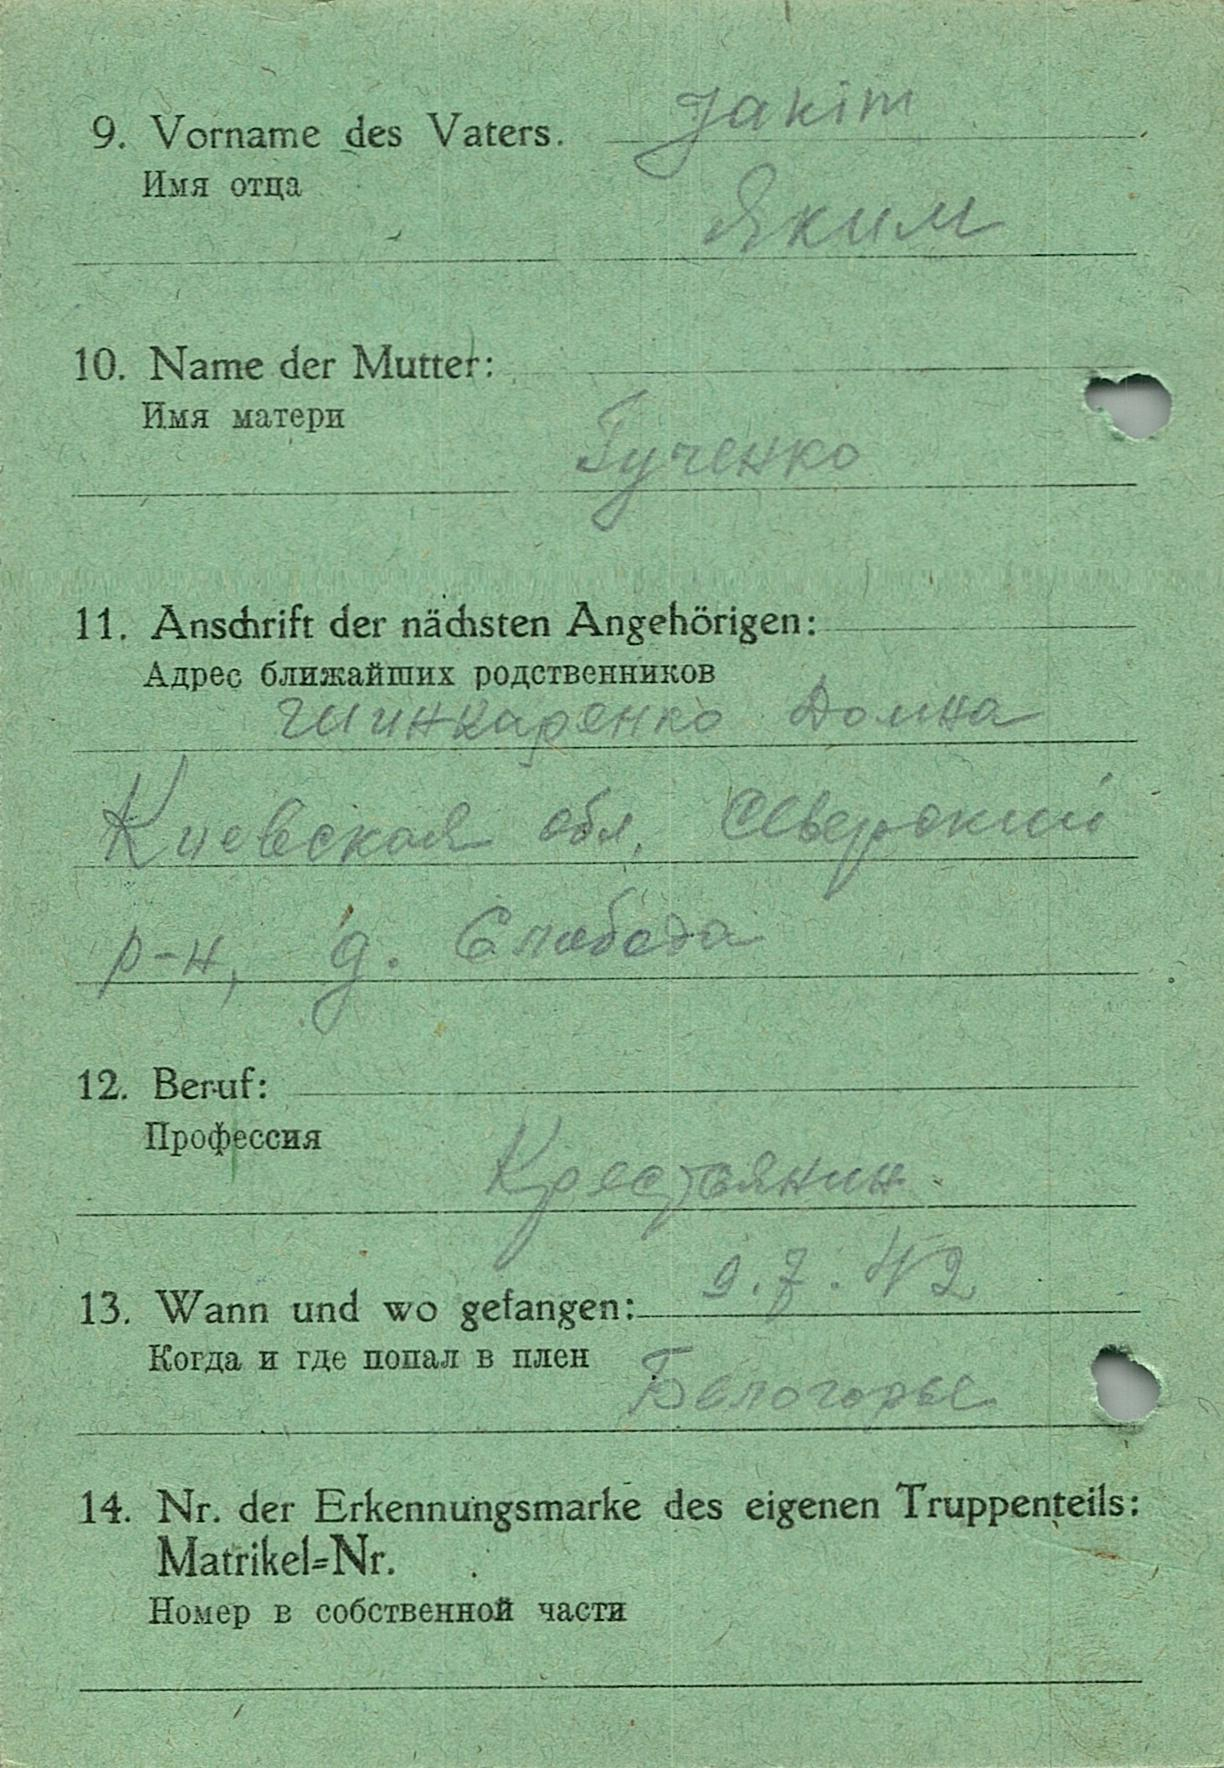 9. Vorname des Vaters. Jakim
Имя отца
Яким
10. Name der Mutter:
Имя матери
Гученко
11. Anschrift der nächsten Angehörigen:
Адрес ближайших родственников
Шинкаренко Домна
Киевская обл.
р-н, д. Слабода
12. Beruf:
Профессия
Крестьянин
13. Wann und wo gefangen: 9.7.42
Когда и где попал в плен
Белогорье
14. Nr. der Erkennungsmarke des eigenen Truppenteils:
Matrikel=Nr.
Номер в собственной части